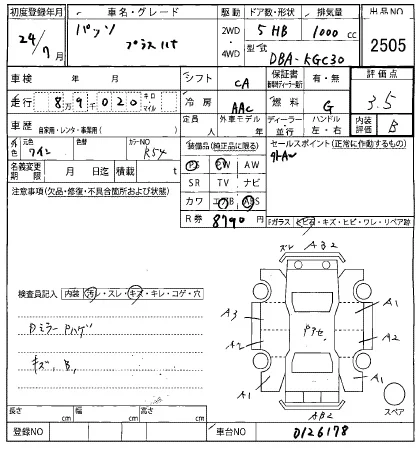 初度登録年月 車名・グレード 駆動 ドア数・形状 排気量 出品NO
24/7月 パッソ プラスハナ 2WD・4WD 5HB 1000cc 2505
型式 DBA-KGC30
車検 年 月 シフト CA 保証書 有・無 評価点
走行 8万9千020 キロ・マイル 冷房 AAC 燃料 G 3.5
車歴 自家用・レンタ・事業用( ) 定員 人 外車モデル 年 ディーラー・並行 ハンドル 左・右 内装評価 B
外色 元色 ワイン 色替 カラーNO R54
装備品(純正品に限る) セールスポイント(正常に作動するもの)
名義変更期限 月 日迄 積載 t
PS PW AW
SR TV ナビ
カワ エアB ABS
R券 8790円
注意事項(欠品・修復・不具合箇所および状態)
Fガラス ヒビ石・キズ・ヒビ・ワレ・リペア跡
ズレ AB2
検査員記入 内装 汚レ・スレ・キズ・キレ・コゲ・穴
A1
A3
Dミラー Pハゲ
A2 A2
キズ, B,
A1 A1
スペア
AB2
長さ cm 幅 cm 高さ cm
登録NO 車台NO 0126178